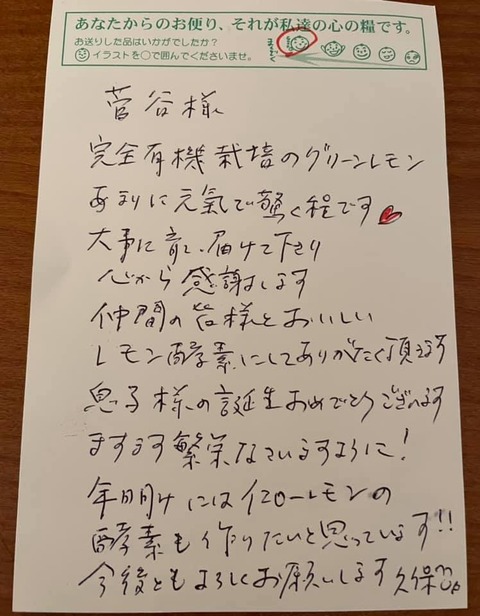 あなたからのお便り、それが私達の心の糧です。
お送りした品はいかがでしたか?
イラストを○で囲んでくださいませ。
菅谷様
完全有機栽培のグリーンレモン
あまりに元氣で驚く程です
大事に育て、届けて下さり
心から感謝します
仲間の皆様とおいしい
レモン酵素にしてありがたく頂きます
息子様の誕生おめでとうございます
ますます繁栄なさいますように!
年明けにはイエローレモンの
酵素も作りたいと思っています!!
今後ともよろしくお願いします 久保